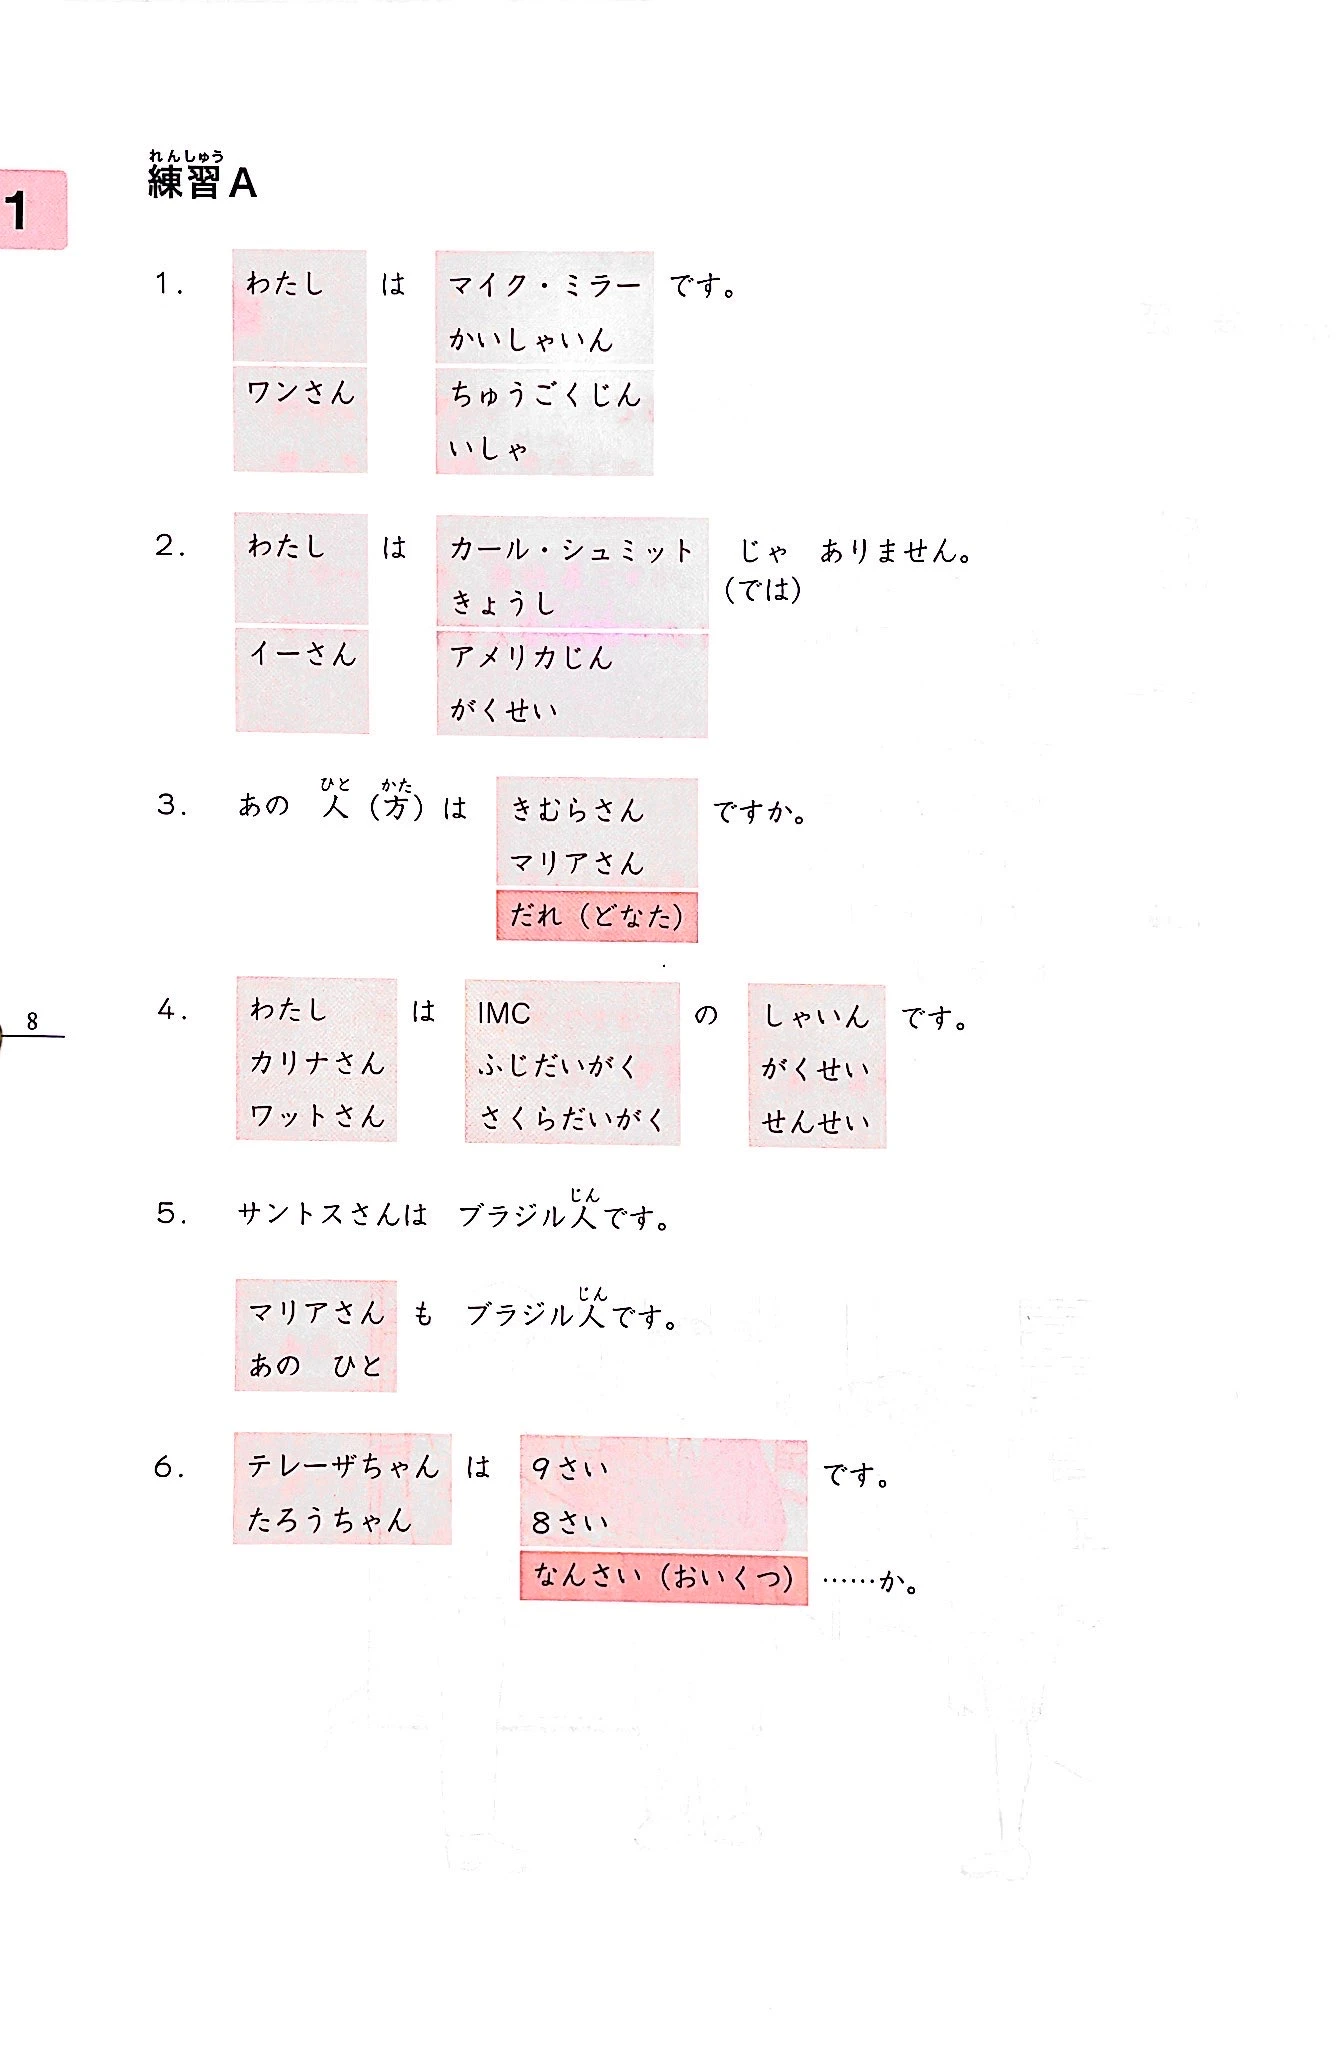 れんしゅう
練習A
1
1. わたし は マイク・ミラー です。
かいしゃいん
ワンさん ちゅうごくじん
いしゃ
2. わたし は カール・シュミット じゃ ありません。
きょうし (では)
イーさん アメリカじん
がくせい
ひと かた
3. あの 人(方)は きむらさん ですか。
マリアさん
だれ(どなた)
4. わたし は IMC の しゃいん です。
8
カリナさん ふじだいがく がくせい
ワットさん さくらだいがく せんせい
じん
5. サントスさんは ブラジル人です。
じん
マリアさん も ブラジル人です。
あの ひと
6. テレーザちゃん は 9さい です。
たろうちゃん 8さい
なんさい(おいくつ) ……か。